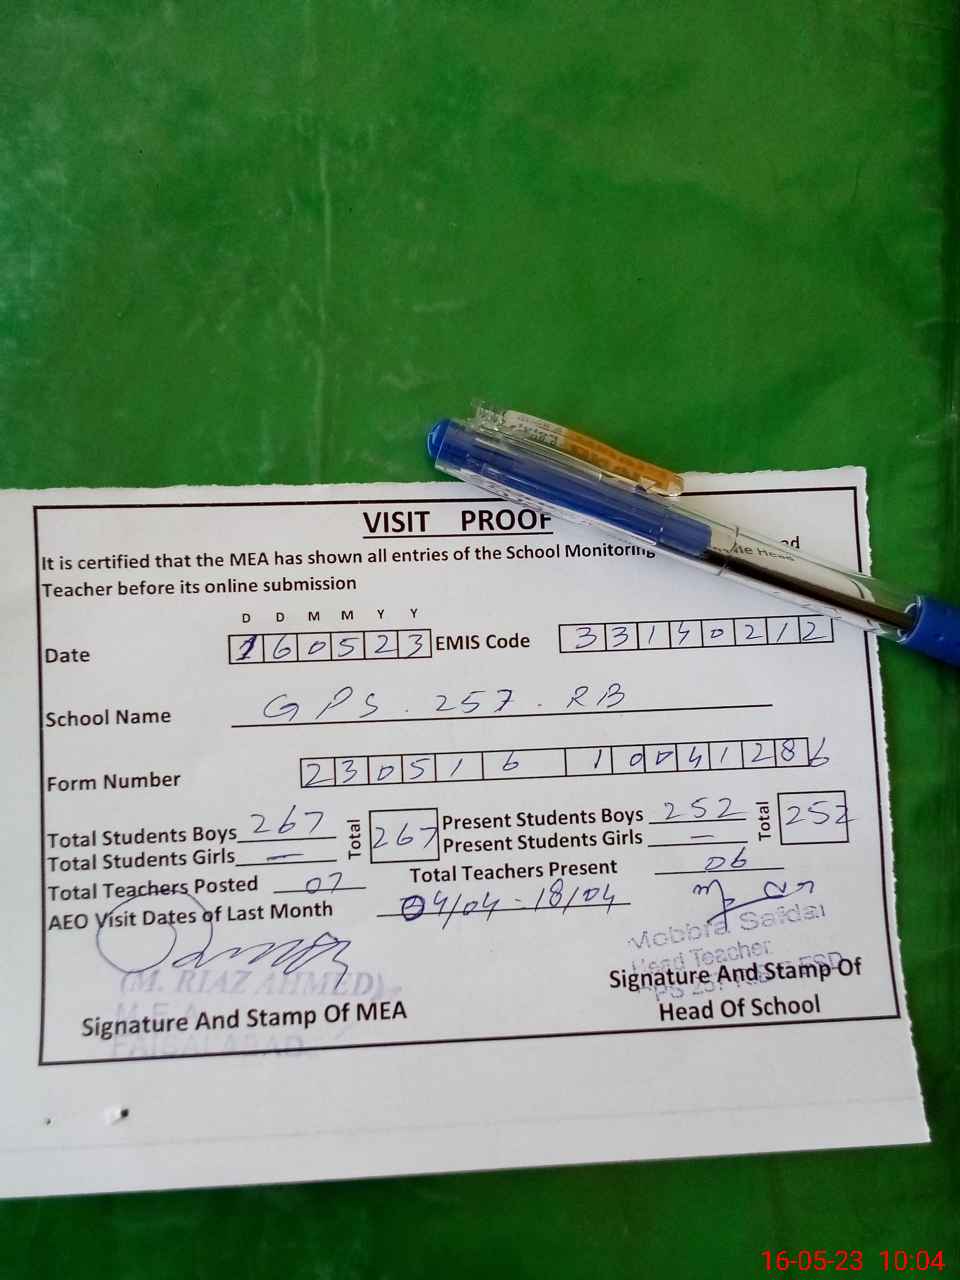 VISIT PROOF
It is certified that the MEA has shown all entries of the School Monitoring
Teacher before its online submission
D D M M Y Y
Date 160523 EMIS Code 33140212
School Name GPS. 257. RB
Form Number 23051610041286
Total Students Boys 267 Total 267 Present Students Boys 252 Total 252
Total Students Girls — Present Students Girls —
Total Teachers Posted 07 Total Teachers Present 06
AEO Visit Dates of Last Month 04/04 - 18/04
(M. RIAZ AHMED)
M.E.A
FAISALABAD
Signature And Stamp Of MEA
Head Teacher
Signature And Stamp Of
Head Of School
16-05-23 10:04